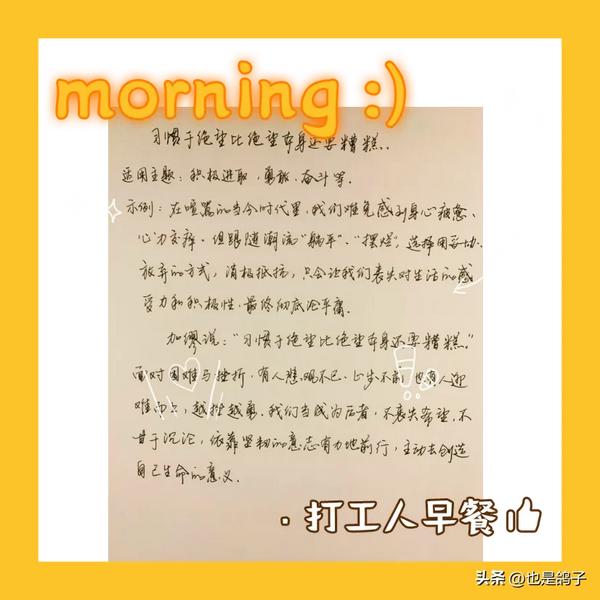 morning :)
习惯于绝望比绝望本身还要糟糕.
适用主题：积极进取，勇敢、奋斗等.
示例：在喧嚣的当今时代里，我们难免感到身心疲惫、
心力交瘁. 但跟随潮流“躺平”、“摆烂”，选择用妥协、
放弃的方式，消极抵抗，只会让我们丧失对生活的感
受力和积极性，最终彻底沦平庸.
加缪说：“习惯于绝望比绝望本身还要糟糕.”
面对困难与挫折，有人悲观不已、止步不前，也有人迎
难而上，越挫越勇. 我们当成为后者，不丧失希望，不
甘于沉沦，依靠坚韧的意志有力地前行，主动去创造
自己生命的意义.
·打工人早餐
头条 @也是鸽子